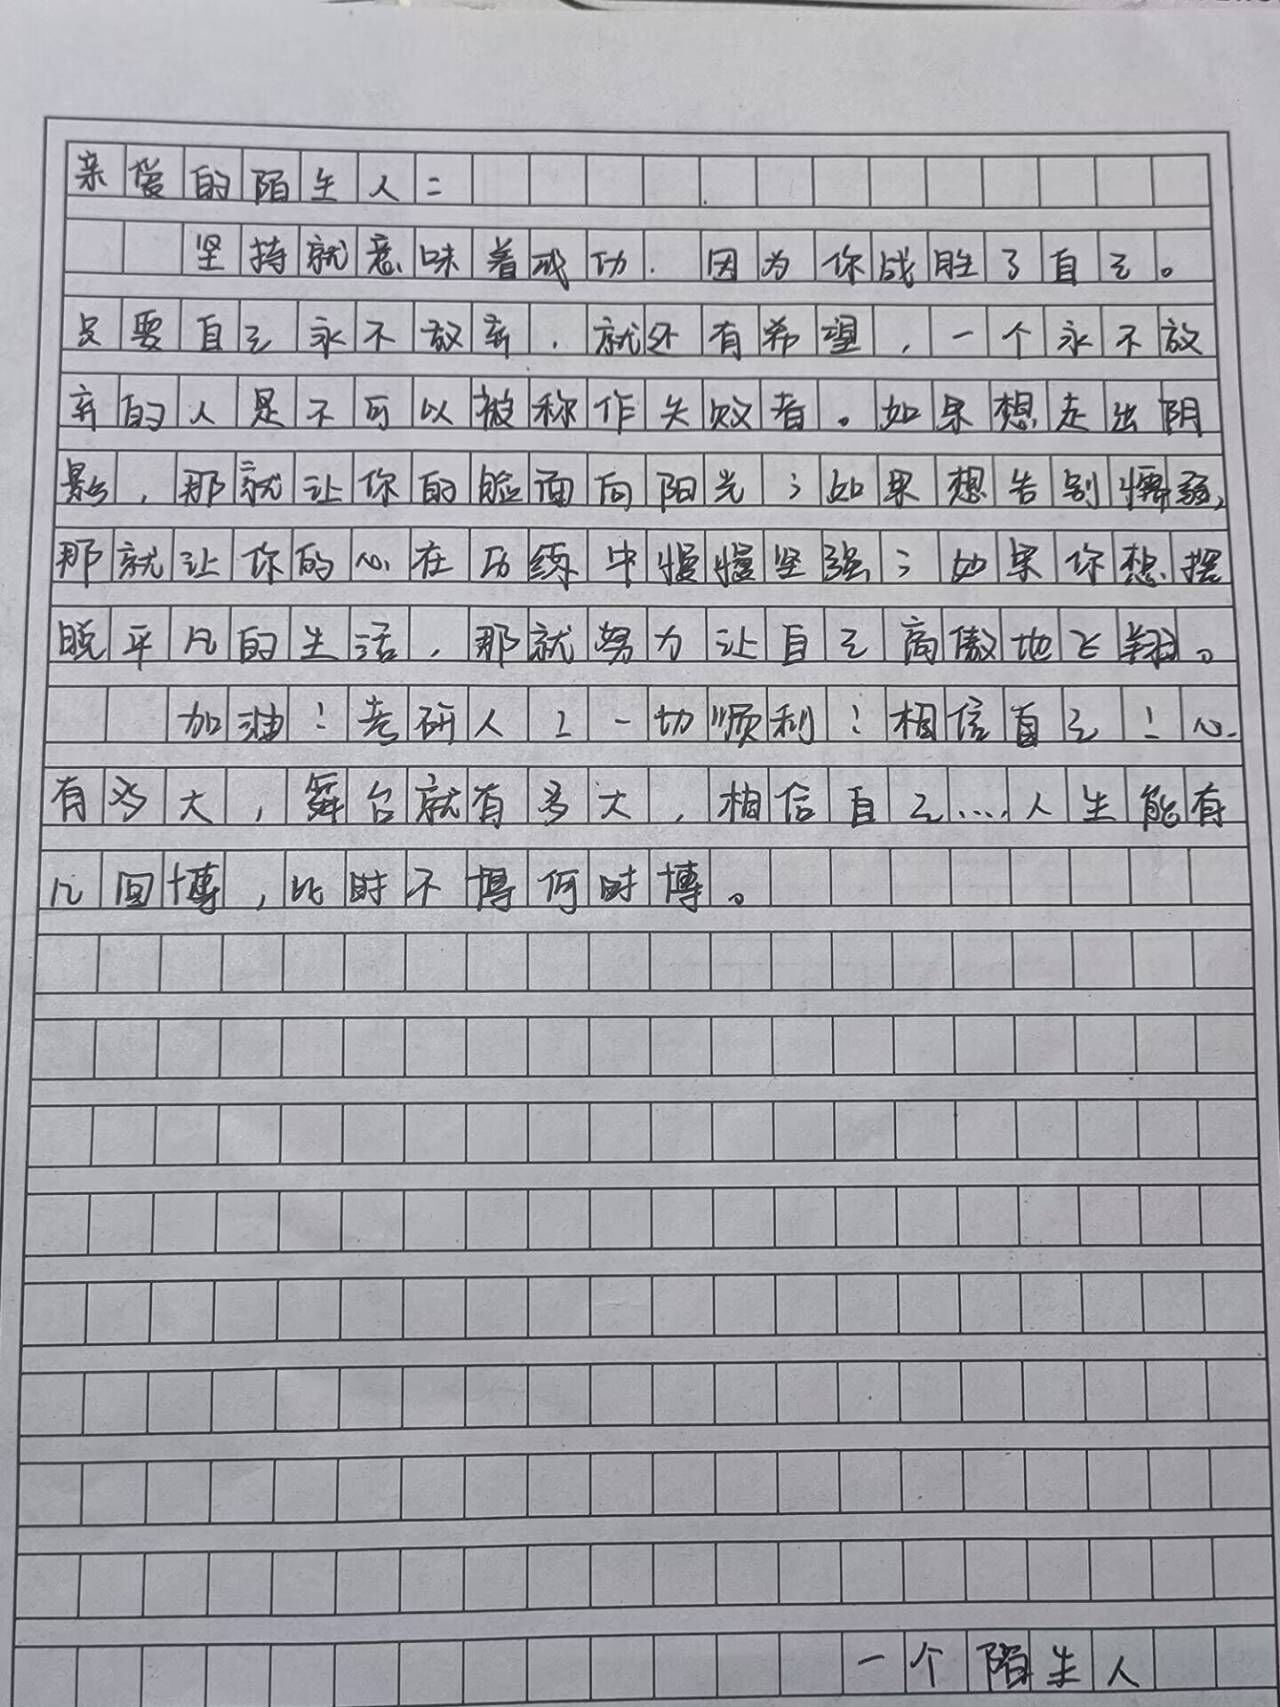 亲爱的陌生人：
坚持就意味着成功．因为你战胜了自己。
只要自己永不放弃，就还有希望，一个永不放
弃的人是不可以被称作失败者。如果想走出阴
影，那就让你的脸面向阳光；如果想告别懦弱，
那就让你的心在历练中慢慢坚强；如果你想摆
脱平凡的生活，那就努力让自己高傲地飞翔。
加油！考研人！一切顺利！相信自己！心
有多大，舞台就有多大，相信自己……人生能有
几回博，此时不博何时博。
一个陌生人